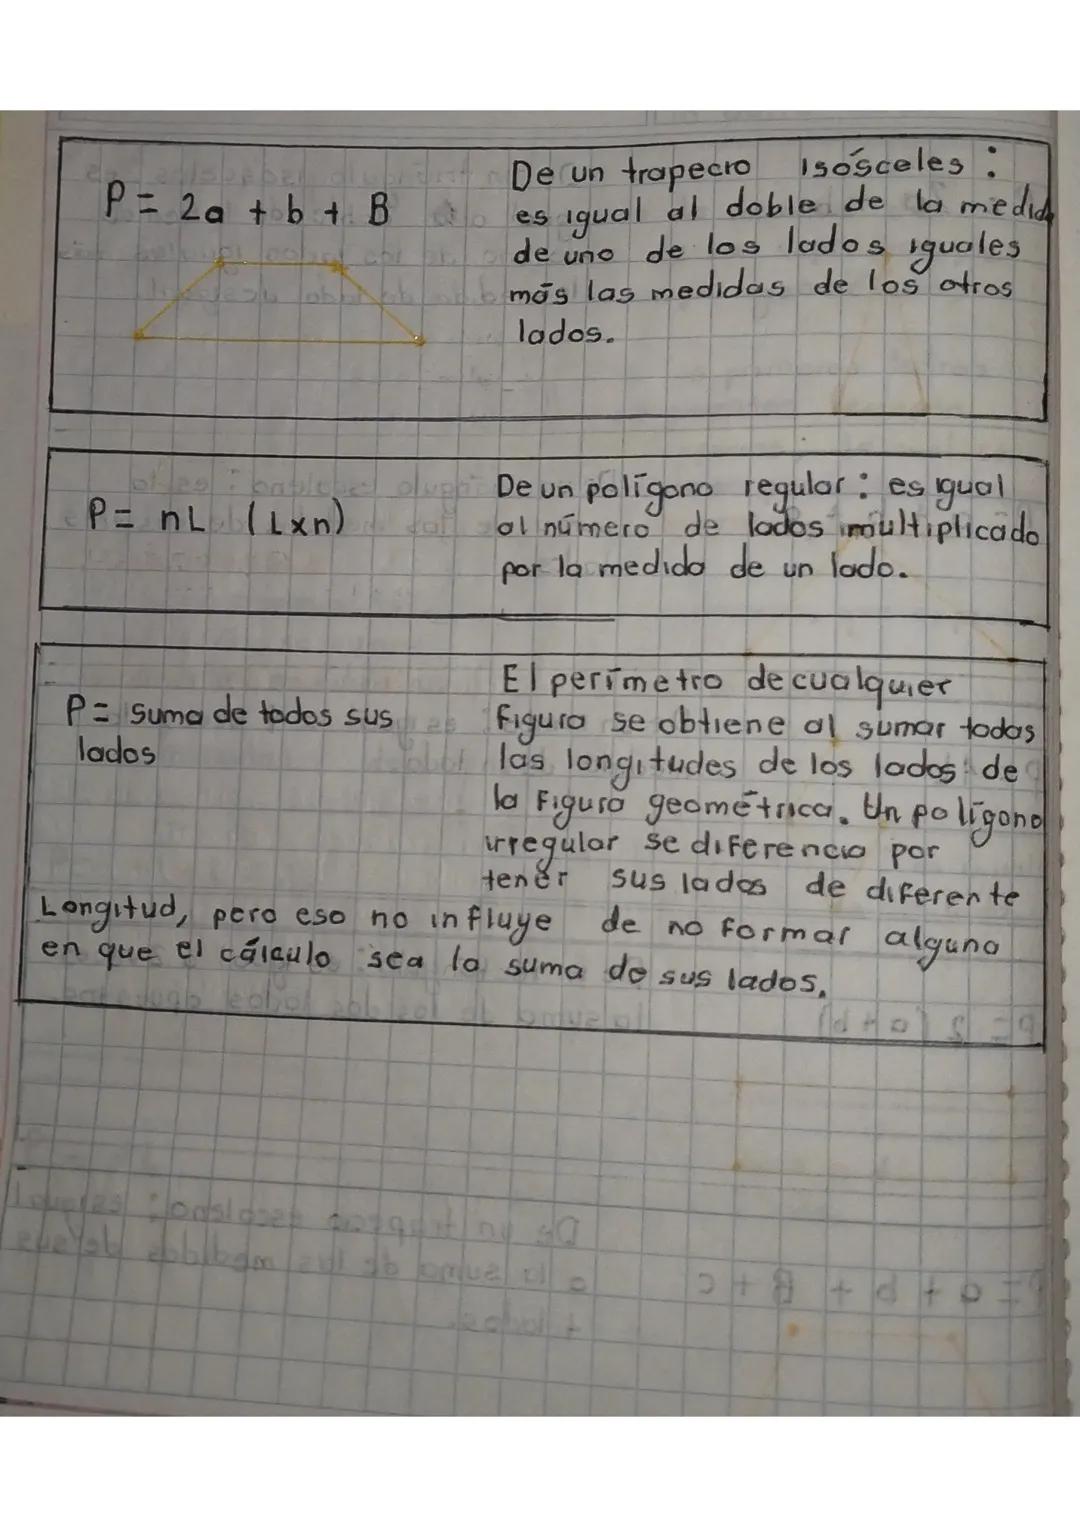 P= 2a + b + B
De un trapecio isósceles:
es igual al doble de la medida
de uno de los lados iguales
más las medidas de los otros
lados.
P= nL (Lxn)
De un polígono regular: es igual
al número de lados multiplicado
por la medida de un lado.
P= Suma de todos sus
lados
El perímetro de cualquier
figura se obtiene al sumar todas
las longitudes de los lados de
la figura geométrica. Un polígono
irregular se diferencia por
tener sus lados de diferente
Longitud, pero eso no influye de no formar alguna
en que el cálculo sea la suma de sus lados.
P= 2 (a+b)
la suma de los dos lados
De un trapecio escaleno: es igual
a la suma de las medidas de sus
P= a + b + B + c
+ lados.